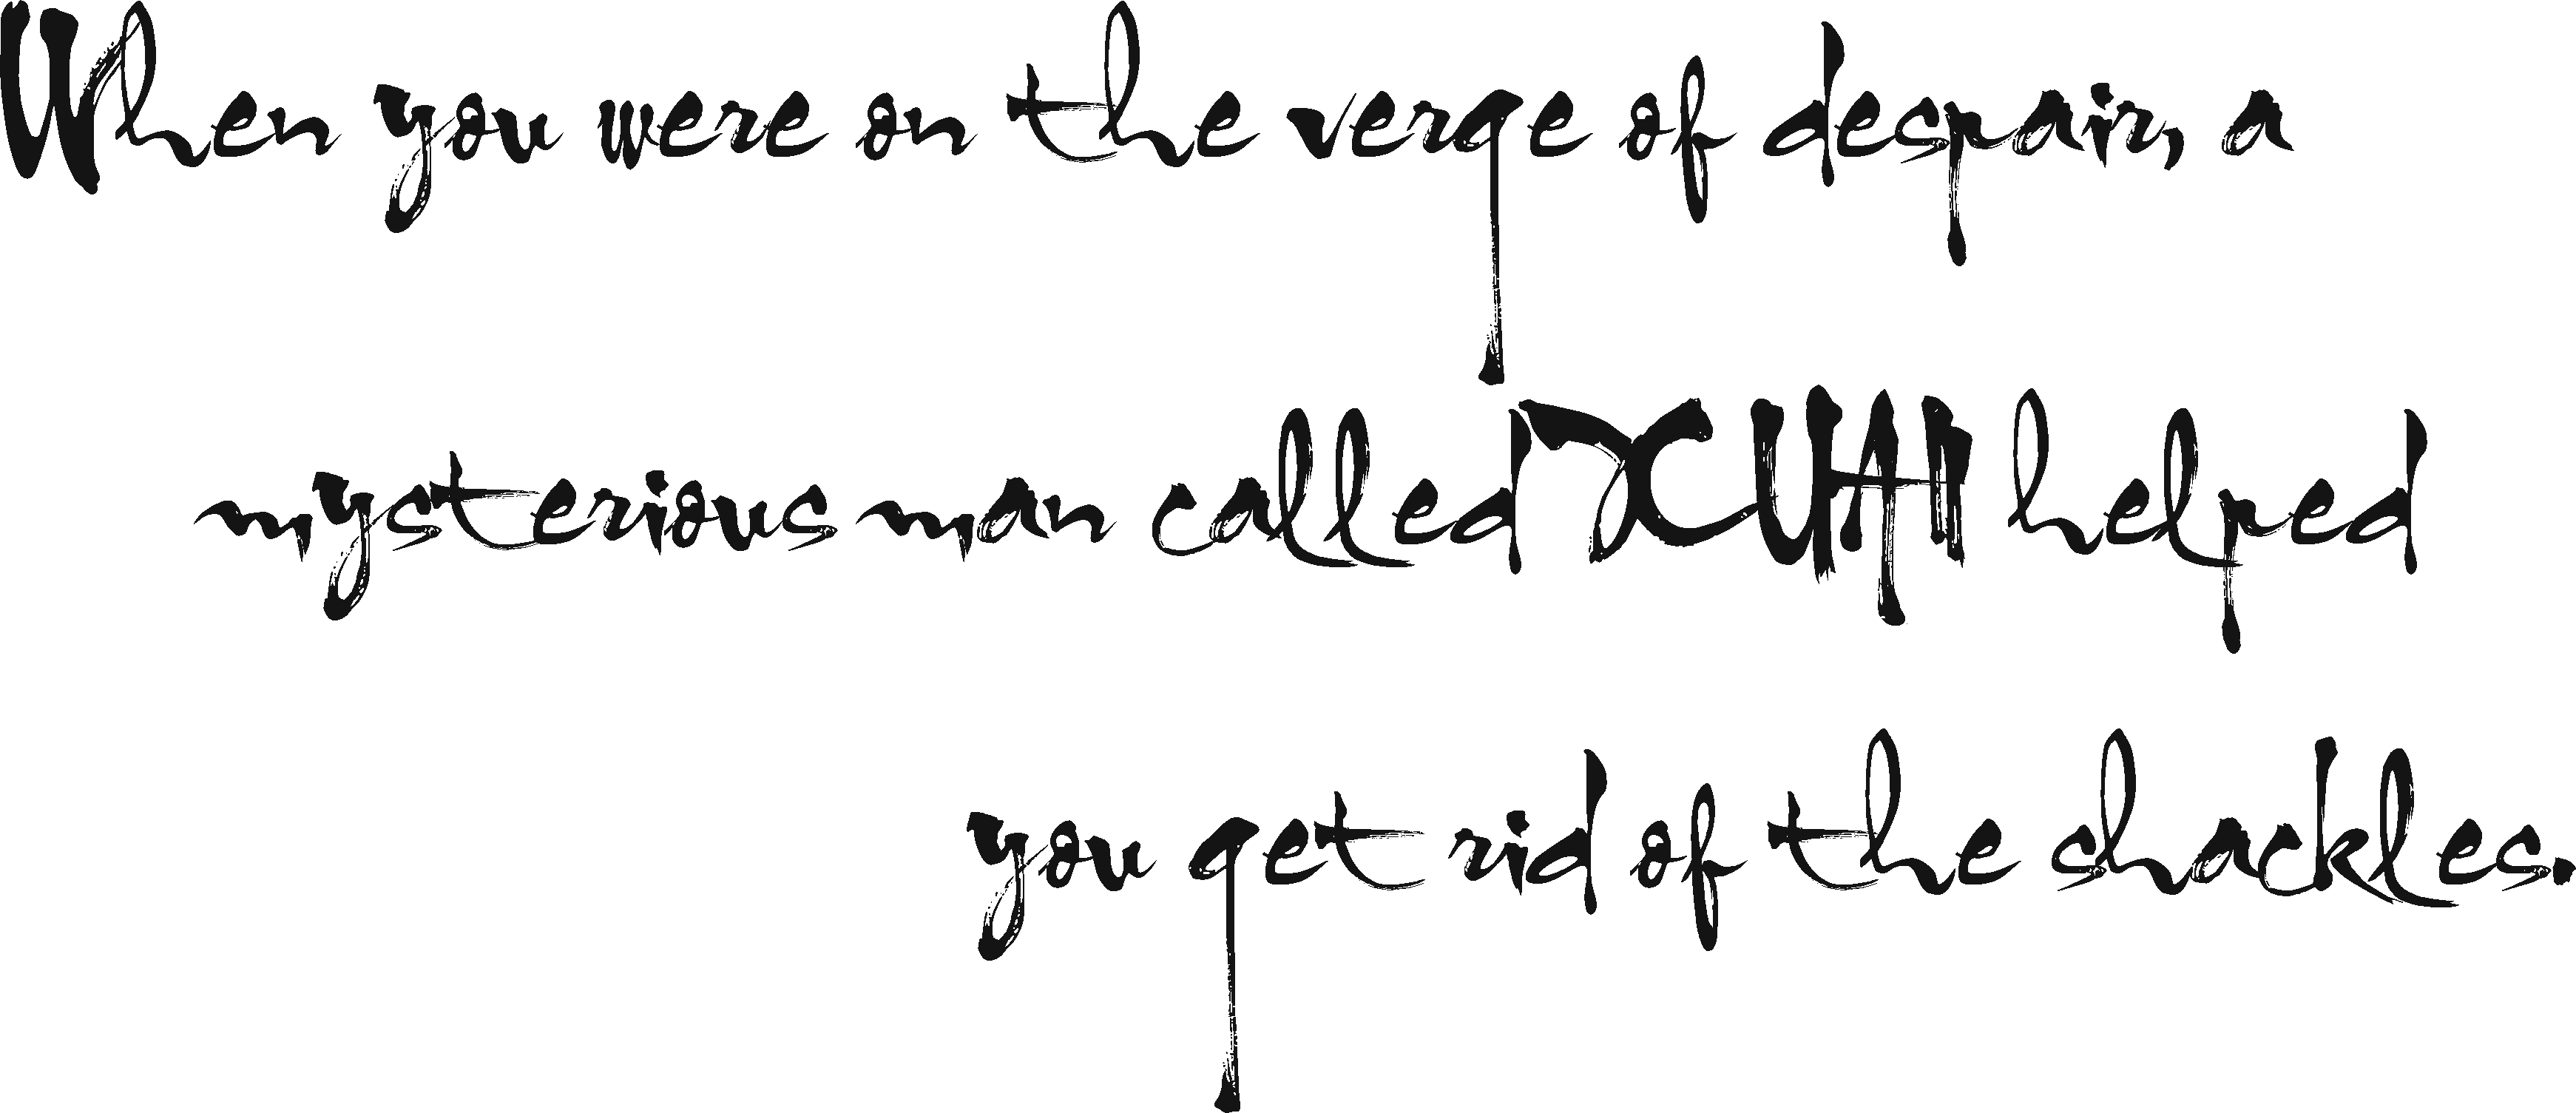 When you were on the verge of despair, a
mysterious man called XUAN helped
you get rid of the shackles.